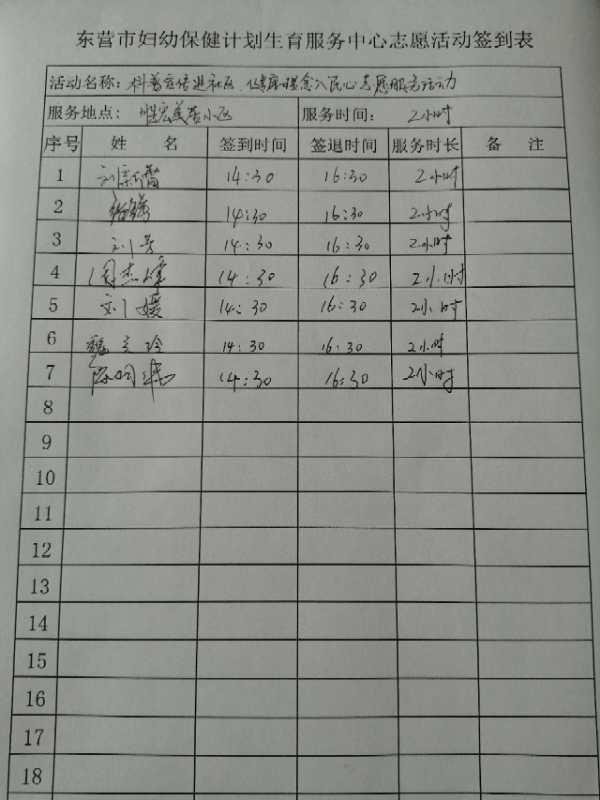 东营市妇幼保健计划生育服务中心志愿活动签到表
活动名称：科普宣传进社区、健康理念入民心志愿服务活动
服务地点：宏美居小区 服务时间：2小时
序号 姓名 签到时间 签退时间 服务时长 备注
1 刘新智 14:30 16:30 2小时
2 14:30 16:30 2小时
3 刘芳 14:30 16:30 2小时
4 周杰 14:30 16:30 2小时
5 刘媛 14:30 16:30 2小时
6 魏立玲 14:30 16:30 2小时
7 14:30 16:30 2小时
8
9
10
11
12
13
14
15
16
17
18